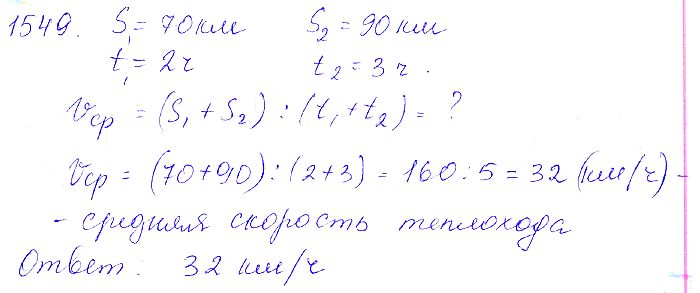 1549. S₁ = 70 км S₂ = 90 км
t₁ = 2 ч t₂ = 3 ч.
Vср = (S₁ + S₂) : (t₁ + t₂) = ?
Vср = (70+90) : (2+3) = 160 : 5 = 32 (км/ч) -
- средняя скорость теплохода
Ответ: 32 км/ч